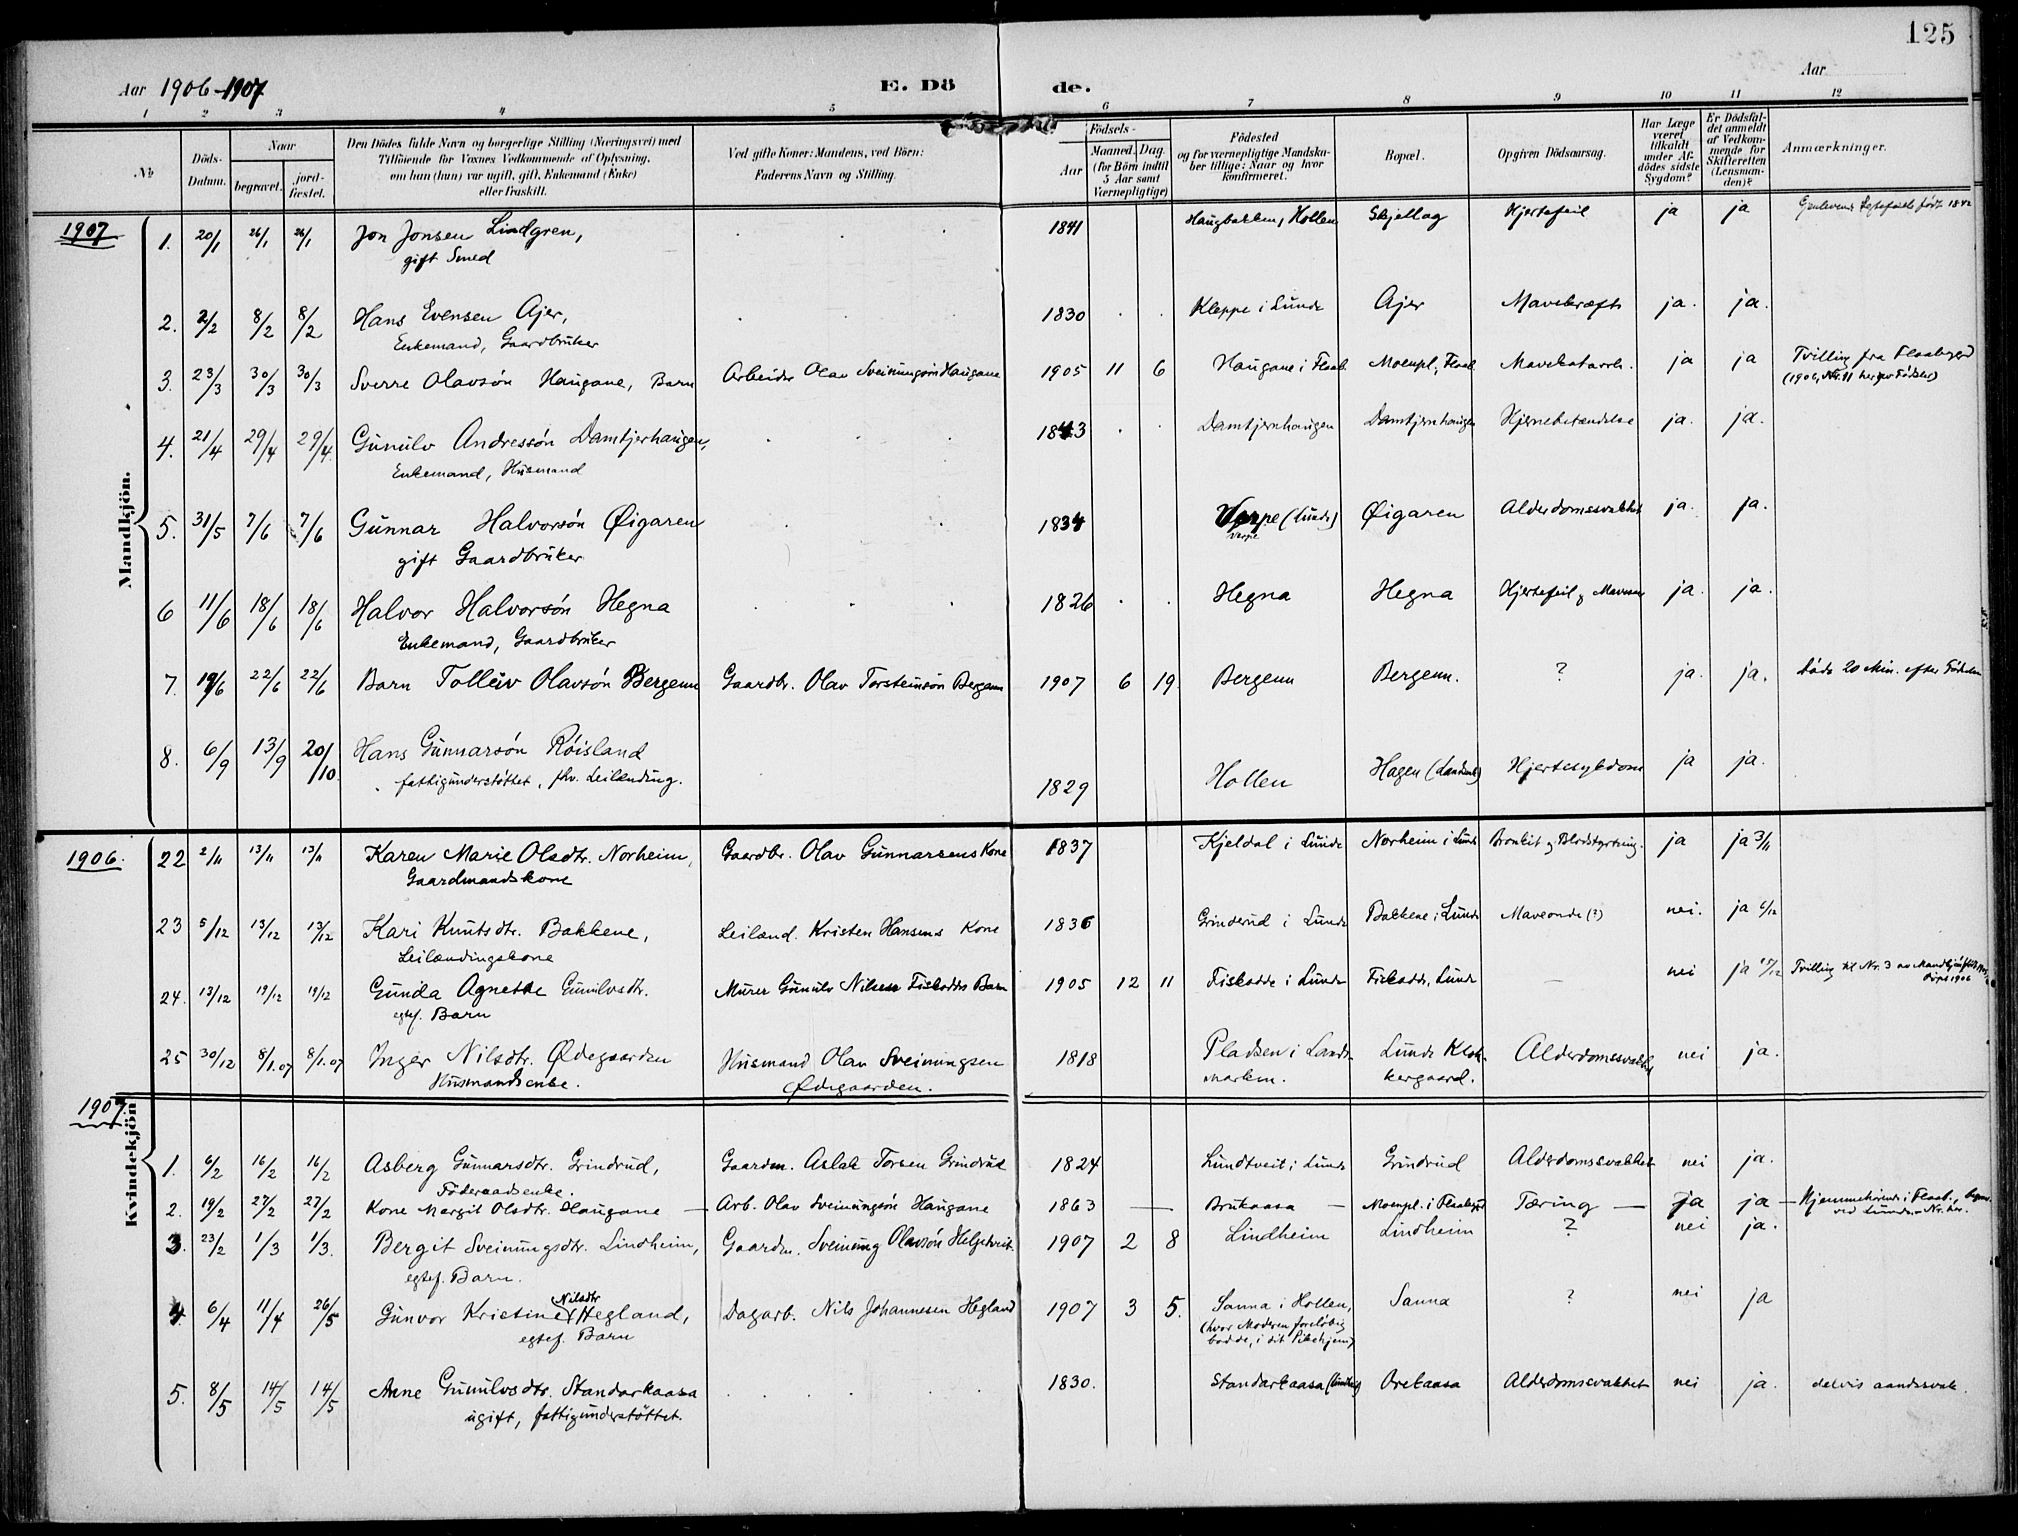 125
Aar 1906-1907 E. Dö de. Aar
1 2 3 4 5 6 7 8 9 10 11 12
No Döds-Datum. Naar begravet. jord-fæstet. Den Dödes fulde Navn og borgerlige Stilling (Næringsvei) med Tilföiende for Voxnes Vedkommende af Oplysning, om han (hun) var ugift, gift, Enkemand (Enke) eller fraskilt. Ved gifte Koner: Mandens, ved Börn: Faderens Navn og Stilling. Födsels- Aar Maaned. Dag. (for Börn indtil 5 Aar samt Værnepligtige) Födested og for værnepligtige Mandskaber tillige: Naar og hvor konfirmeret. Bopæl. Opgiven Dödsaarsag. Har Læge været tilkaldt under Afdödes sidste Sygdom? Er Dödsfaldet anmeldt af Vedkommende for Skifteretten (Lensmanden)? Anmærkninger.
Mandkjön.
1907 1. 20/1 26/1 26/1 Jon Jonsen Lindgren, 1841 Haugbakken, Hollen Skjellag Hjertefeil ja ja Gjenlevende Ægtefælle født 1842
gift Smed
2. 2/2 8/2 8/2 Hans Evensen Ajer, 1830 Kleppe i Lunde Ajer Mavekræft ja. ja.
Enkemand, Gaardbruker
3. 23/3 30/3 30/3 Sverre Olavsön Haugane, Barn Arbeider Olav Sveinungsön Haugane 1905 11 6 Haugane i Flaab. Moenpl, Flaab. Mavekatarrh. ja ja Tvilling fra Flaabygd
(1906, Nr. 11 her av Fødsler)
4. 21/4 29/4 29/4 Gunulv Andressön Damtjernhaugen, 1843 Damtjernhaugen Damtjernhaugen Hjernebetændelse ja. ja.
Enkemand, Husmand
5. 31/5 7/6 7/6 Gunnar Halvorsön Øigaren 1834 Verpe (Lunde) Øigaren Alderdomssvakhet ja. ja.
Verpe
gift Gaardbruker
6 11/6 18/6 18/6 Halvor Halvorsön Hegna 1826 Hegna Hegna Hjertefeil og ja. ja.
Enkemand, Gaardbruker
7. 19/6 22/6 22/6 Barn Tolleiv Olavsön Bergenn Gaardbr. Olav Torsteinsön Bergenn 1907 6 19. Bergenn Bergenn. ? ja. ja. døde 20 Min. efter Fødselen
8. 6/9 13/9 20/10 Hans Gunnarsön Röisland 1829 Hollen Hagen Hjertesykdom ja ja.
fattigunderstøttet, fhv. Leilending.
1906. 22 2/11 13/11 13/11 Karen Marie Olsdtr. Norheim, Gaardbr. Olav Gunnarsens Kone 1837 Kjeldal i Lunde Norheim i Lunde Bronkit og Blodstyrtning. ja ja 3/11
Gaardmandskone
23 5/12 13/12 13/12 Kari Knutsdtr. Bakkene, Leilænd. Kristen Hansens Kone 1836 Grinderud i Lunde Bakkene i Lunde Maveonde (?) nei. ja 6/12
Leilændingskone
24. 13/12 19/12 19/12 Gunda Agnethe Gunulvsdtr. Murer Gunulv Nilsen Fiskodds Barn 1905 12 11 Fiskodde i Lunde Fiskodde, Lunde — nei ja 17/12 Tvilling til Nr. 3 av Mandkjøn
egtef. Barn
25 30/12 8/1.07 8/1.07 Inger Nilsdtr. Ødegaarden Husmand Olav Sveinungsen 1818 Pladsen i Lands- Lunde Klok- Alderdomssvakhet nei ja.
Husmandsenke. Ødegaarden. marken. kergaard.
1907
Kvindekjön
1. 6/2 16/2 16/2 Asberg Gunnarsdtr. Grindrud, Gaardm. Aslak Torsen Grindrud 1824 Lundtveit i Lunde Grindrud Alderdomssvakhet nei ja.
Föderaadsenke.
2. 19/2 27/2 27/2 Kone Margit Olsdtr. Haugane — Arb. Olav Sveinungsön Haugane 1863 — Brukaasa — Moenpl. i Flaabygd Tæring — ja ja — Hjemmehørende i Flaab., begrav.
ved Lunde. — Nr. her.
3. 23/2 1/3 1/3. Bergit Sveinungsdtr. Lindheim, Gaardm. Sveinung Olavsön Helgetveit. 1907 2 8 Lindheim Lindheim ? nei ja.
egtef. Barn.
4. 6/4 11/4 26/5 Gunvor Kristine Nilsdtr Hegland, Dagarb. Nils Johannesen Hegland 1907 3 5. Sanna i Hollen, Sanna ? nei ja
egtef. Barn (hvor Moderen foreløbig
bodde, i sit Pikehjem)
5. 8/5 14/5 14/5 Anne Gunulvsdtr. Standarkaasa 1830. Standarkaasa (Lunde) Orekaasa Alderdomssvakhet nei ja. delvis aandssvak.
ugift, fattigunderstöttet.